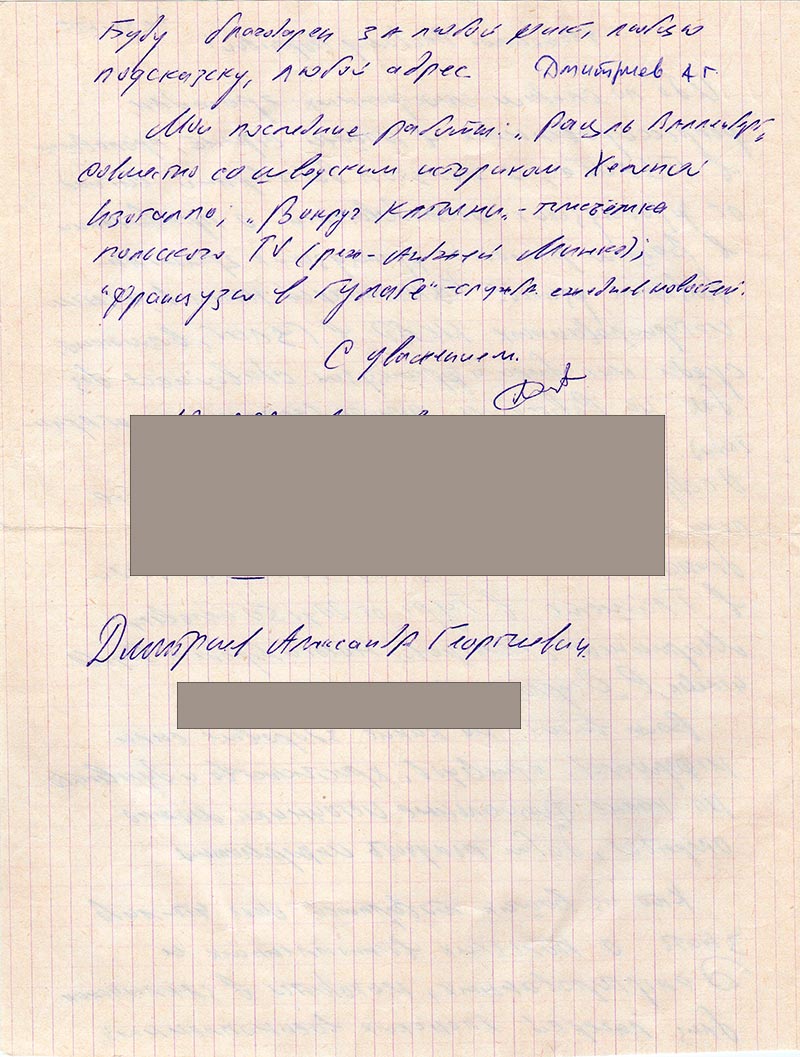 Буду благодарен за любой факт, любую
подсказку, любой адрес. Дмитриев А Г.
Мои последние работы: „Рауль Валленберг„
совместно со шведским историком Хеленой
„Вокруг Катыни„ -
польского TV (реж- Анджей Минко);
"Французы в Гулаге" - служба ежеднев. новостей.
С уважением.
Дмитриев Александр Георгиевич.